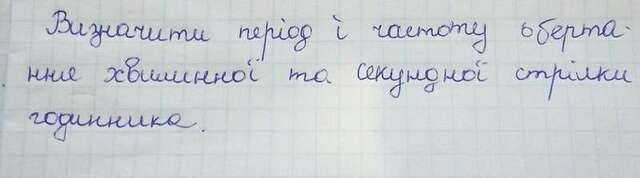 Визначити період і частоту оберта-
ння хвилинної та секундної стрілки
годинника.